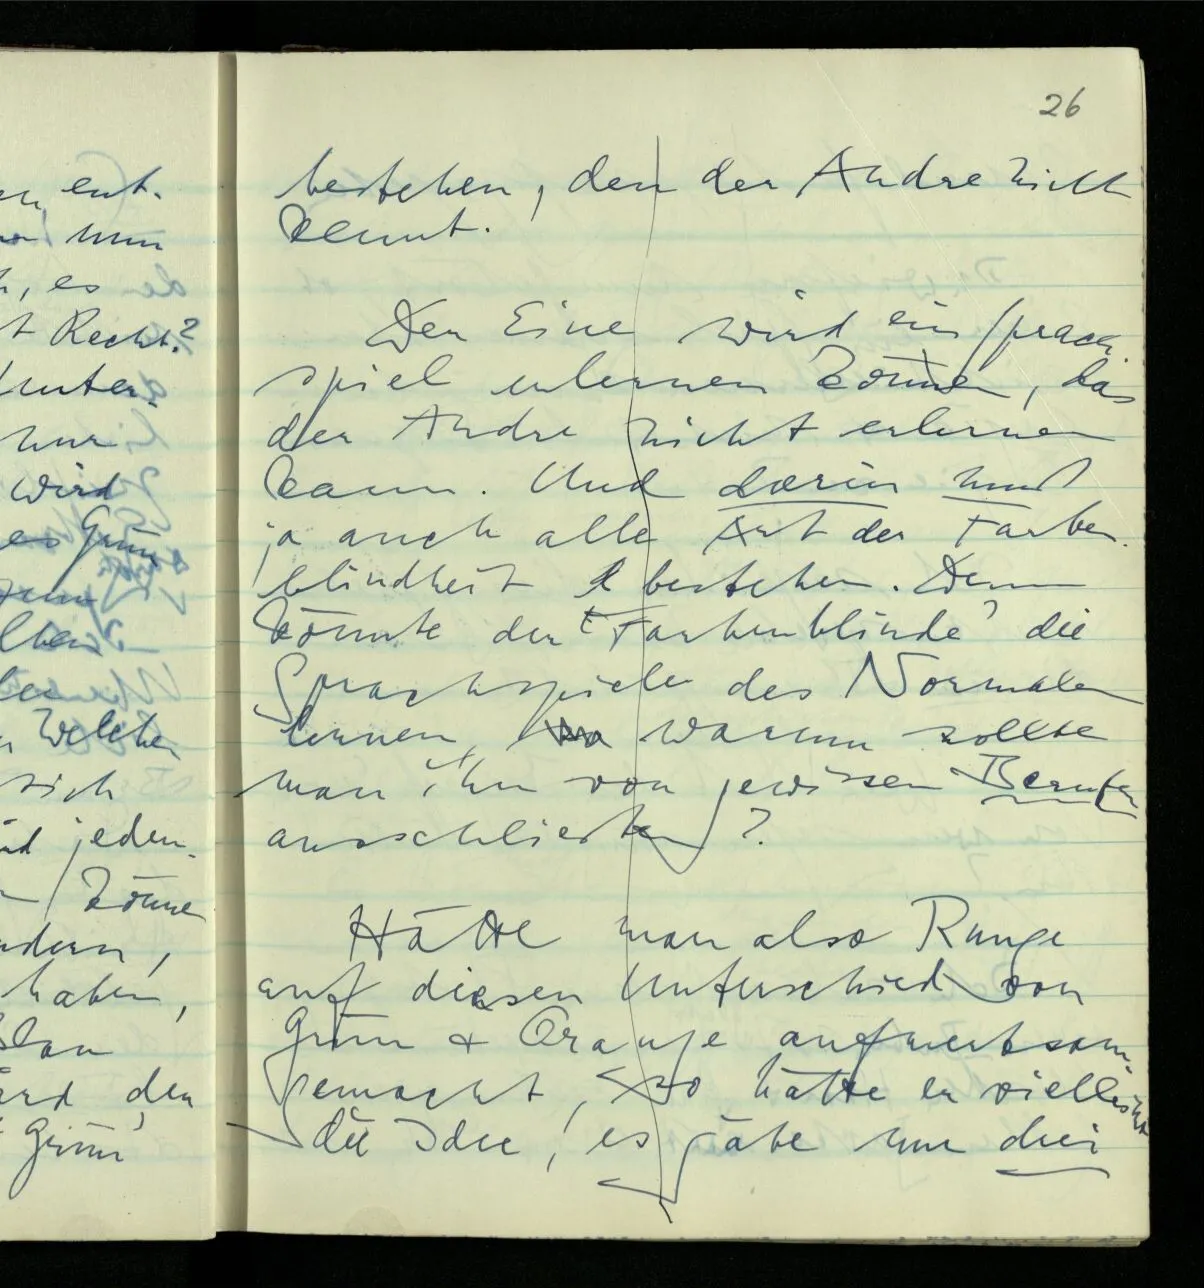 en, ent-
nun
, es
t Recht?
Unter-
nur
wird
es Grün
lben
Welcher
sich
jeden-
könne
ndern,
haben,
Blau
den
Grün
26
bestehen, den der Andre nicht
kennt.
Der Eine wird ein Sprach-
spiel erlernen können, das
der Andre nicht erlernen
kann. Und darin muß
ja auch alle Art der Farben-
blindheit bestehen. Denn
könnte der ‘Farbenblinde’ die
Sprachspiele des Normalen
lernen, warum sollte
man ihn von gewissen Berufen
ausschließen?
Hätte man also Runge
auf diesen Unterschied von
Grün & Orange aufmerksam
gemacht, so hätte er vielleicht
die Idee, es gäbe nur drei